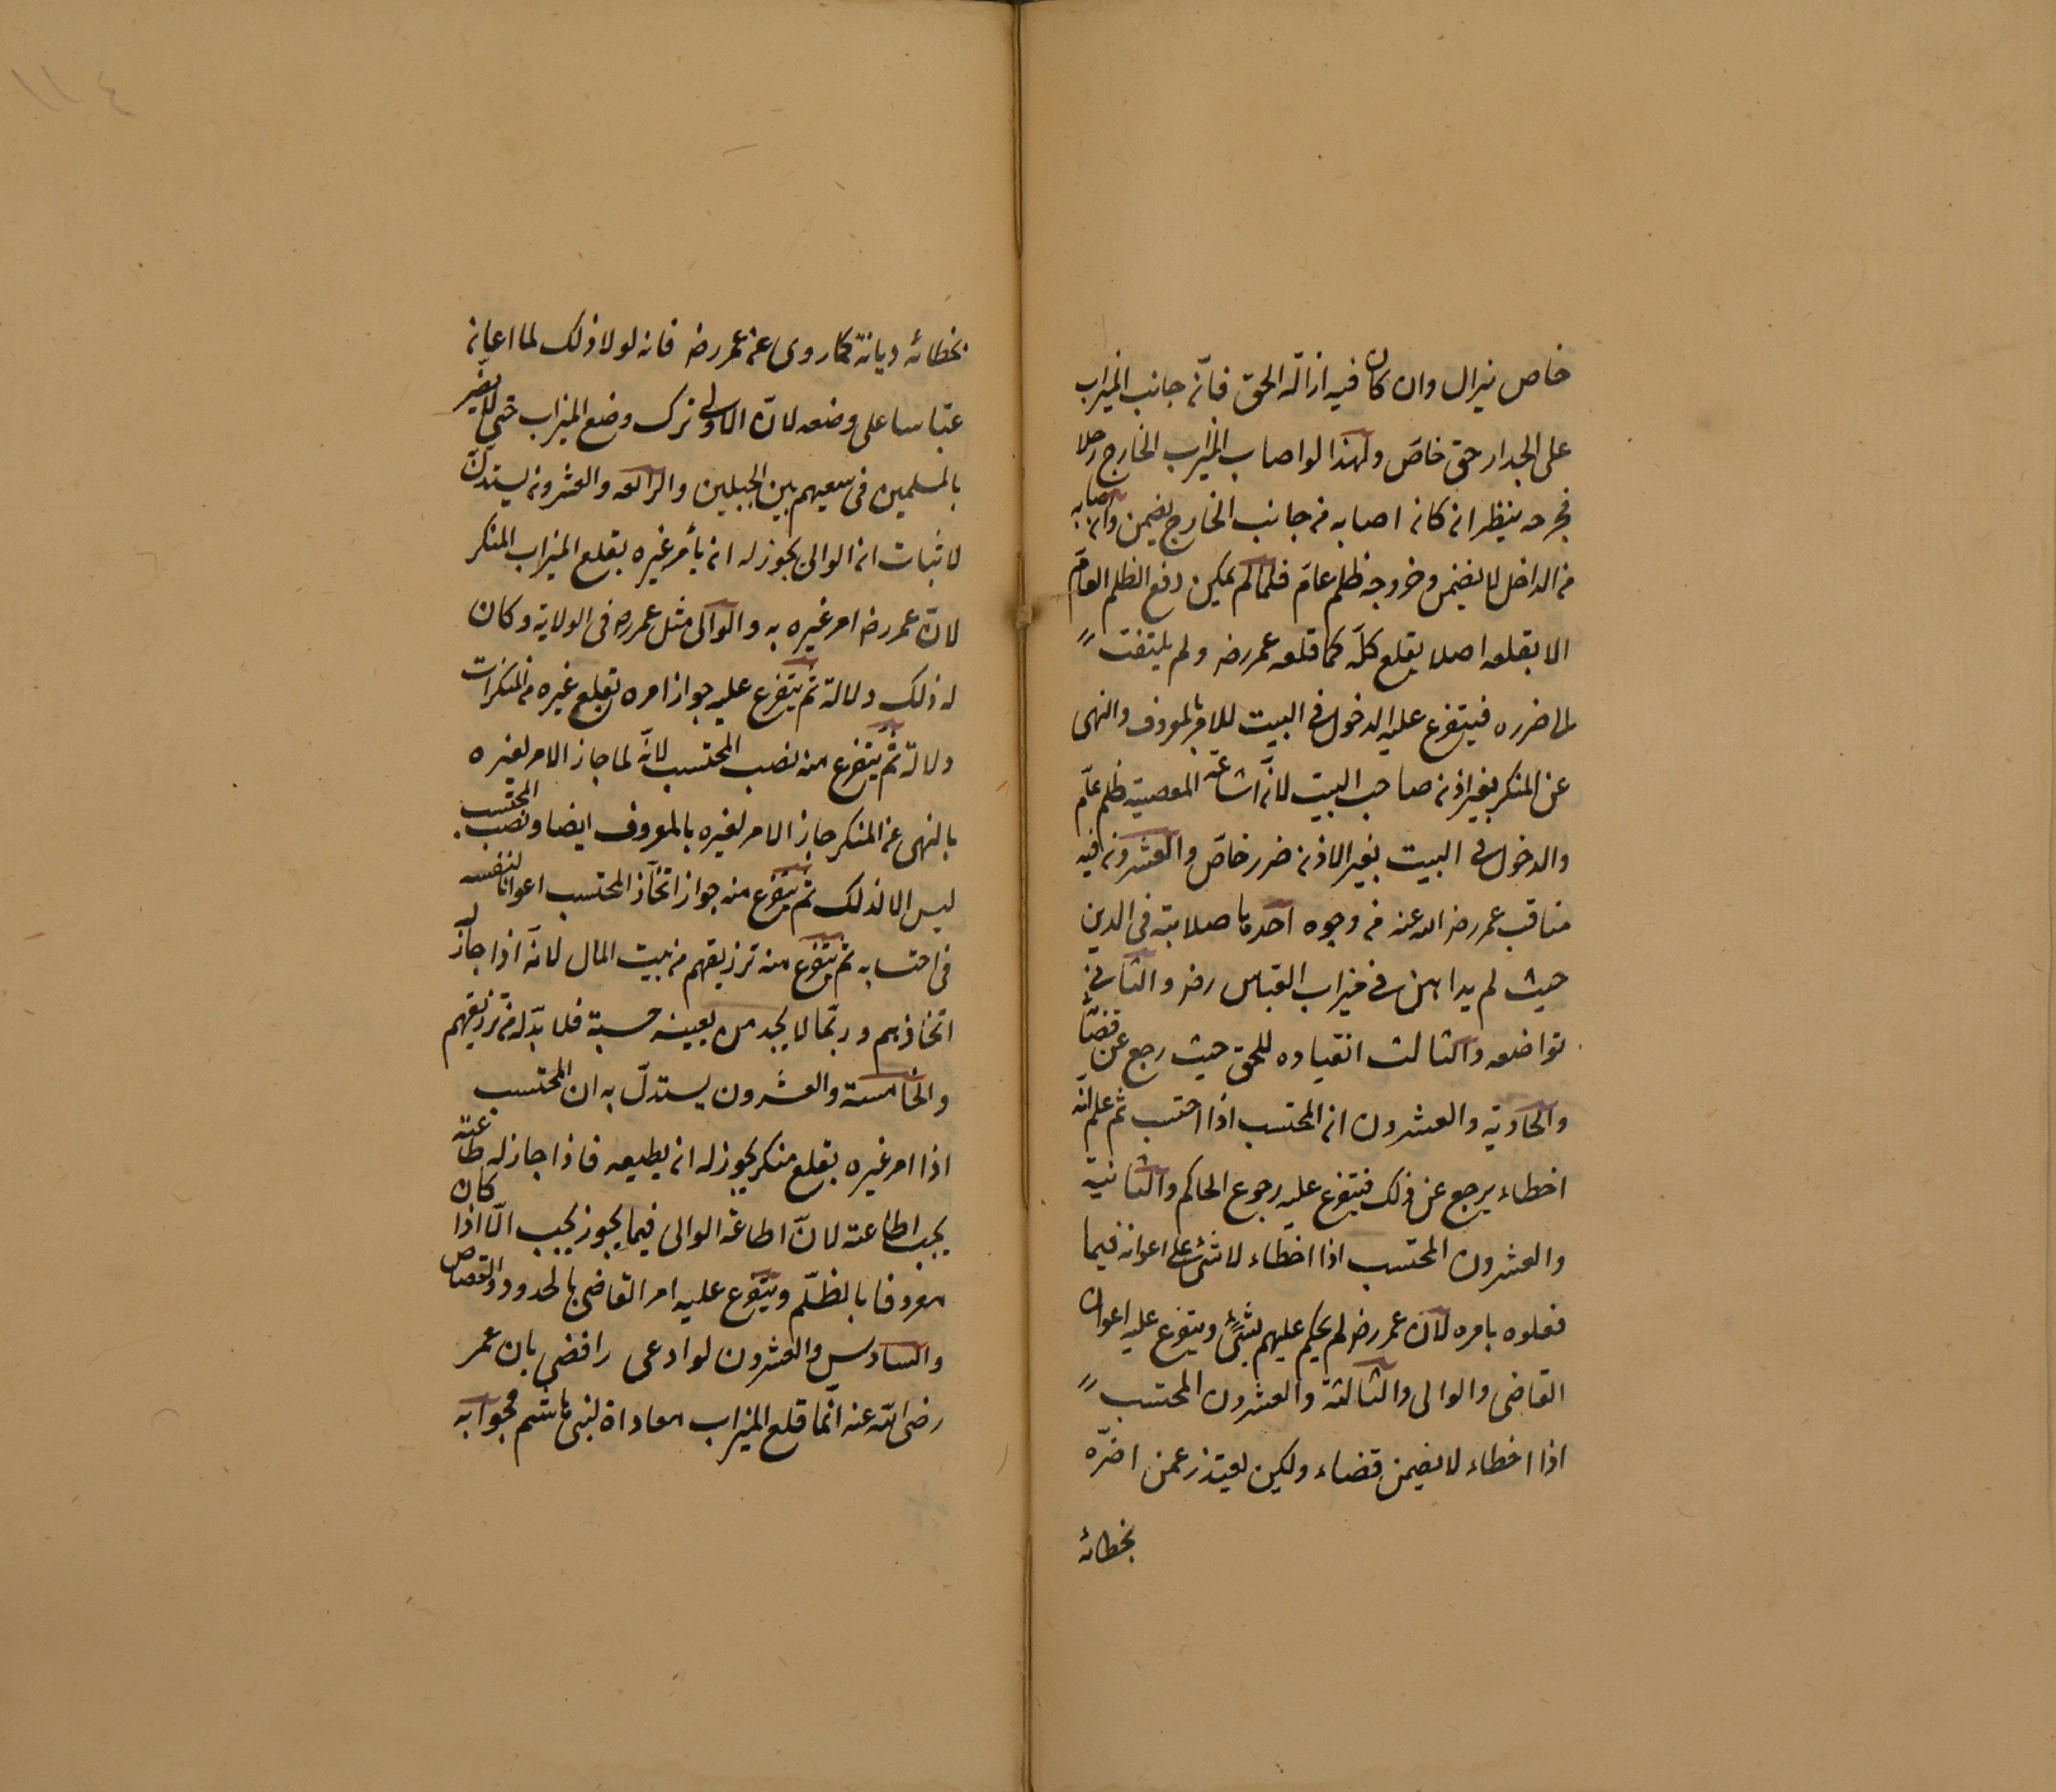 خاص يزال وان كان فيه ازالة الحق فانّ جانب الميزاب
على الجدار حق خاصّ ولهذا لو اصاب الميزاب الخارج رجلا
فجرحه ينظر ان كان اصابه من جانب الخارج يضمن وان اصابه
من الداخل لا يضمن وخروجه ظلم عامّ فلما لم يمكن دفع الظلم العامّ
الا بقلعه اصلا يقلع كلّه كما قلعه عمر رضه ولم يلتفت
الى ضرره فيتفرع عليه الدخول فى البيت للامر بالمعروف والنهى
عن المنكر بغير اذن صاحب البيت لانّ اشاعة المعصية ظلم عامّ
والدخول فى البيت بغير الاذن ضرر خاصّ والعشرون فيه
مناقب عمر رضى الله عنه من وجوه احدها صلابته فى الدين
حيث لم يداهن فى ميزاب العباس رضه والثانى
تواضعه والثالث انقياده للحق حيث رجع عن قضائه
والحادية والعشرون ان المحتسب اذا احتسب ثم علم انّه
اخطاء يرجع عن ذلك فيتفرع عليه رجوع الحاكم والثانية
والعشرون المحتسب اذا اخطاء لا شئ على اعوانه فيما
فعلوه بامره لانّ عمر رضه لم يحكم عليهم بشئ ويتفرع عليه اعوان
القاضى والوالى والثالثة والعشرون المحتسب
اذا اخطاء لا يضمن قضاء ولكن يعتذر عمن اضرّه
بخطائه
بخطائه ديانة كما روى عن عمر رضه فانه لولا ذلك لما اعان
عبّاسا على وضعه لانّ الاولى ترك وضع الميزاب حتى لا يضير
بالمسلمين فى سعيهم بين الجبلين والرابعة والعشرون يستدلّ
لاثبات ان الوالى يجوز له ان يأمر غيره بقلع الميزاب المنكر
لانّ عمر رضه امر غيره به والوالى مثل عمر رضه فى الولاية وكان
له ذلك دلالة ثم يتفرع عليه جواز امره بقلع غيره من المنكرات
دلالة ثم يتفرع منه نصب المحتسب لانّه لما جاز الامر لغيره
بالنهى عن المنكر جاز الامر لغيره بالمعروف ايضا ونصب المحتسب
ليس الا لذلك ثم يتفرع منه جواز اتخاذ المحتسب اعوانا لنفسه
فى احتسابه ثم يتفرع منه ترزيقهم من بيت المال لانّه اذا جاز له
اتخاذهم وربّما لا يجد من يعينه حسبة فلا بدّ له من ترزيقهم
والخامسة والعشرون يستدلّ به ان المحتسب
اذا امر غيره بقلع منكر يجوز له ان يطيعه فاذا جاز له طاعته
يجب اطاعته لانّ اطاعة الوالى فيما يجوز يجب الّا اذا كان
معروفا بالظلم ويتفرع عليه امر القاضى بالحدود والقصاص
والسادس والعشرون لو ادعى رافضى بان عمر
رضى الله عنه انّما قلع الميزاب معاداة لبنى هاشم فجوابه
١١٤